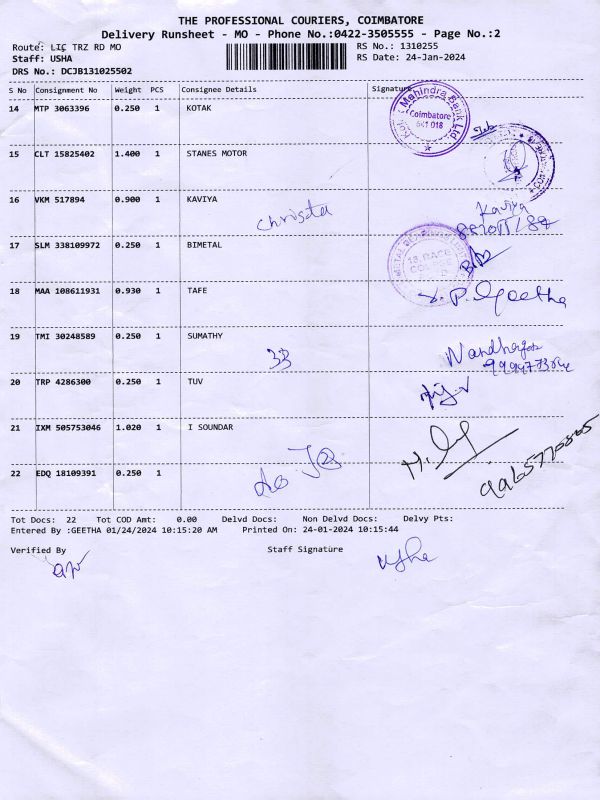 THE PROFESSIONAL COURIERS, COIMBATORE
Delivery Runsheet - MO - Phone No.:0422-3505555 - Page No.:2
Route: LIC TRZ RD MO RS No.: 1310255
Staff: USHA RS Date: 24-Jan-2024
DRS No.: DCJB131025502
S No Consignment No Weight PCS Consignee Details Signature
14 MTP 3063396 0.250 1 KOTAK
Mahindra Bank Ltd
Coimbatore
641 018
15 CLT 15825402 1.400 1 STANES MOTOR
16 VKM 517894 0.900 1 KAVIYA
Christa Kaviya
17 SLM 338109972 0.250 1 BIMETAL
18 MAA 108611931 0.930 1 TAFE
P. Geetha
19 TMI 30248589 0.250 1 SUMATHY
33
20 TRP 4286300 0.250 1 TUV
21 IXM 505753046 1.020 1 I SOUNDAR
22 EDQ 18109391 0.250 1
Tot Docs: 22 Tot COD Amt: 0.00 Delvd Docs: Non Delvd Docs: Delvy Pts:
Entered By :GEETHA 01/24/2024 10:15:20 AM Printed On: 24-01-2024 10:15:44
Verified By Staff Signature
Usha